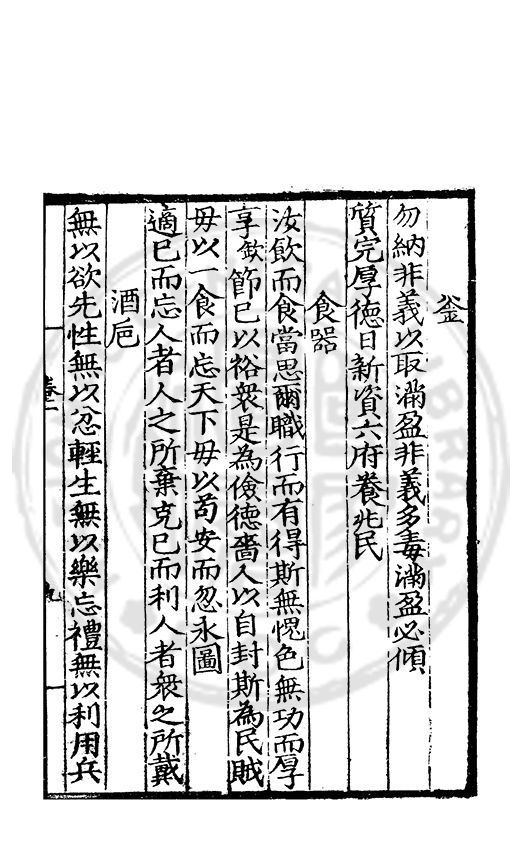 釡
勿納非義以取滿盈非義多毒滿盈必傾
質完厚德日新資六府養兆民
食器
汝飲而食當思爾職行而有得斯無愧色無功而厚
享歛節已以裕衆是為儉德嗇人以自封斯為民賊
毋以一食而忘天下毋以苟安而忽永圖
適已而忘人者人之所棄克已而利人者衆之所戴
酒巵
無以欲先性無以忿輕生無以樂忘禮無以利用兵
卷二
九